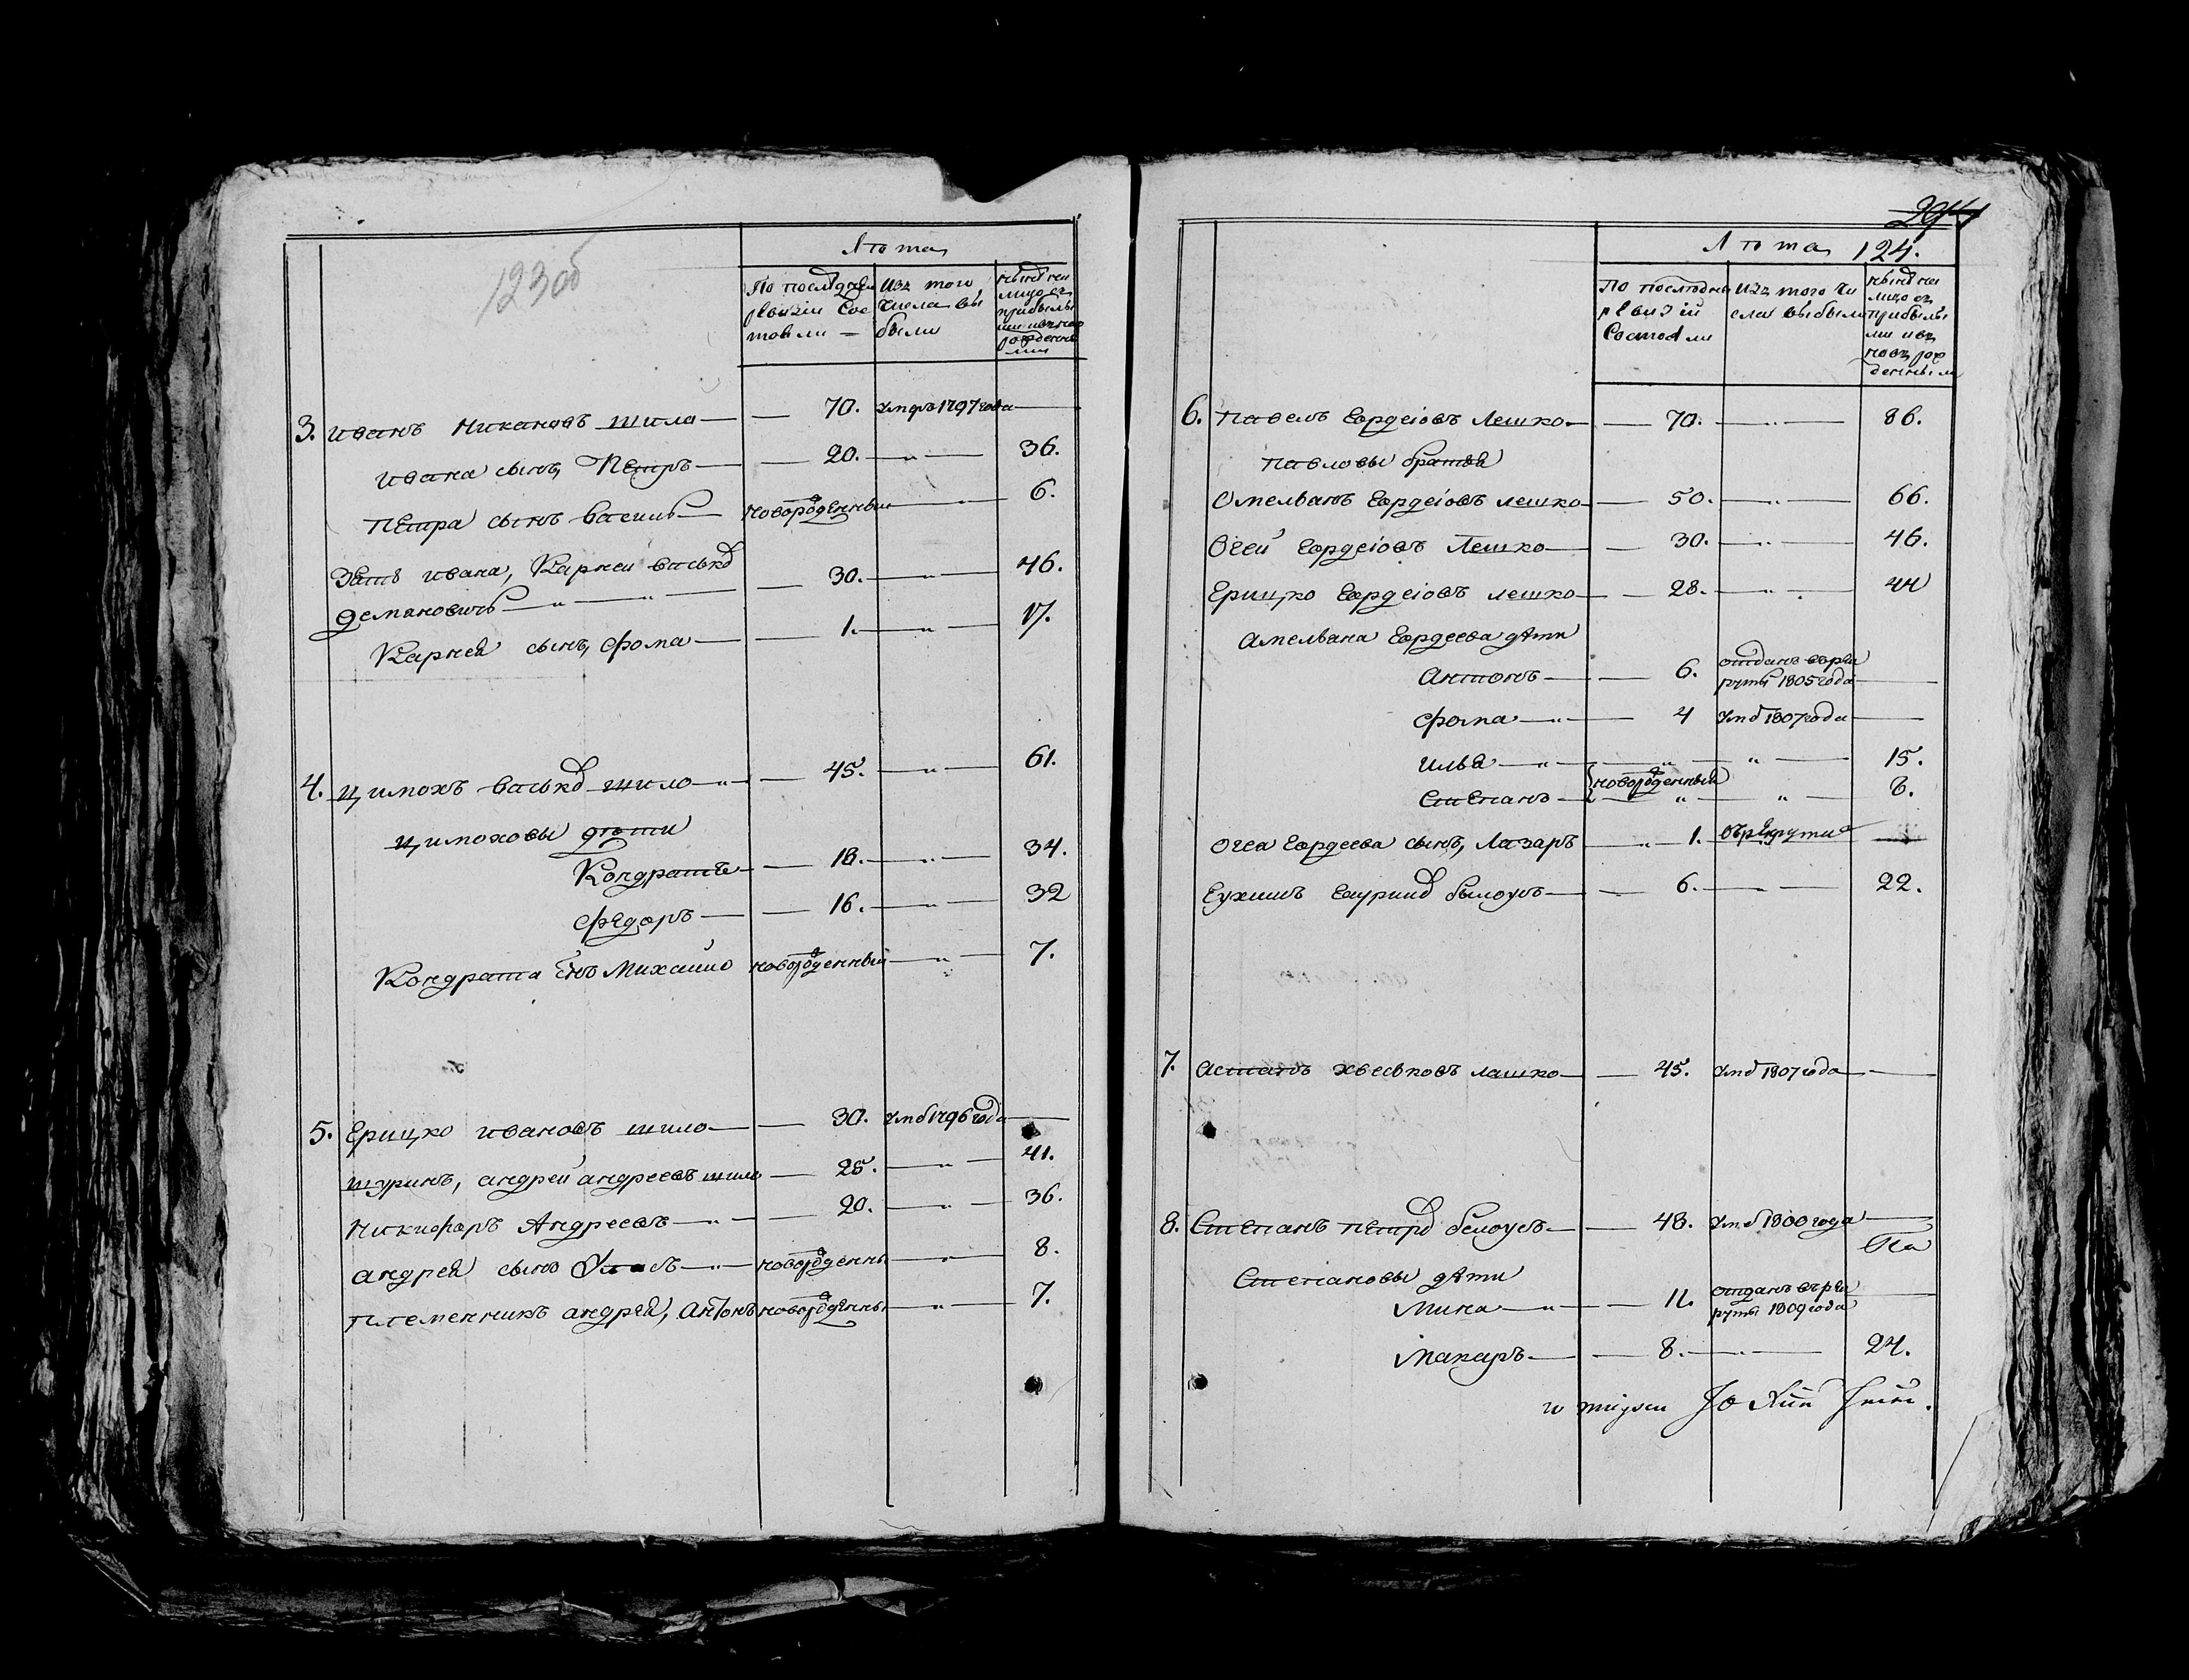 123об
Лѣта
По последней Изъ того нынѣ на
ревизіи сос числа вы лицо съ
тояли — были прибылы
ми и вновь
рожденны
ми
3. иванъ никановъ шило — 70. умръ 1797 года —
ивана сынъ, Петръ — 20. — " — 36.
петра сынъ василь — новорожденный — " — 6.
Зять ивана, Карней васько
демяновичъ — " — " — 30. — " — 46.
Карнея сынъ, фома — 1. — " — 17.
4. цимохъ васько шило — " — 45. — " — 61.
цимоховы дѣти
Кондратъ — 18. — " — 34.
федоръ — 16. — " — 32
Кондрата снъ Михайло новорожденный — " — 7.
5. грицко ивановъ шило — 30. умр 1796 года —
шуринъ, андрей андреевъ шило — 25. — " — 41.
никифоръ Андреевъ — " — 20. — " — 36.
андрея сынъ — " — новорожденны — " — 8.
племенникъ андрея, Антонъ новорожденны — " — 7.
294
Лѣта 124.
По последней изъ того чи нынѣ на
ревизіи сла выбыли лицо съ
Состояли прибылы
ми и въ
новь рож
денными
6. павелъ гордеіовъ лешко — 70. — " — 86.
павловы братья
Омельянъ гордеіовъ лешко — 50. — " — 66.
Огей гордеіовъ Лешко — 30. — " — 46.
грицко гордеіовъ лешко — 28. — " — 44
амельяна гордеева дѣти
антонъ — 6. отданъ въ рек
руты 1805 года —
фома — " — 4 умр 1807 года —
илья — " — " — " — 15.
степанъ — новорожденный " — " — 6.
огея гордеева сынъ, лазаръ — " — 1. въ рекруты —
Еухимъ гаурило былоусъ — 6. — 22.
7. астапъ хвеськовъ лашко — 45. умр 1807 года —
8. Степанъ петро белоусъ — 48. умр 1800 года —
Степановы дѣти
Мина — " — 11. отданъ въ рек
руты 1809 года —
Макаръ — 8. — " — 24.